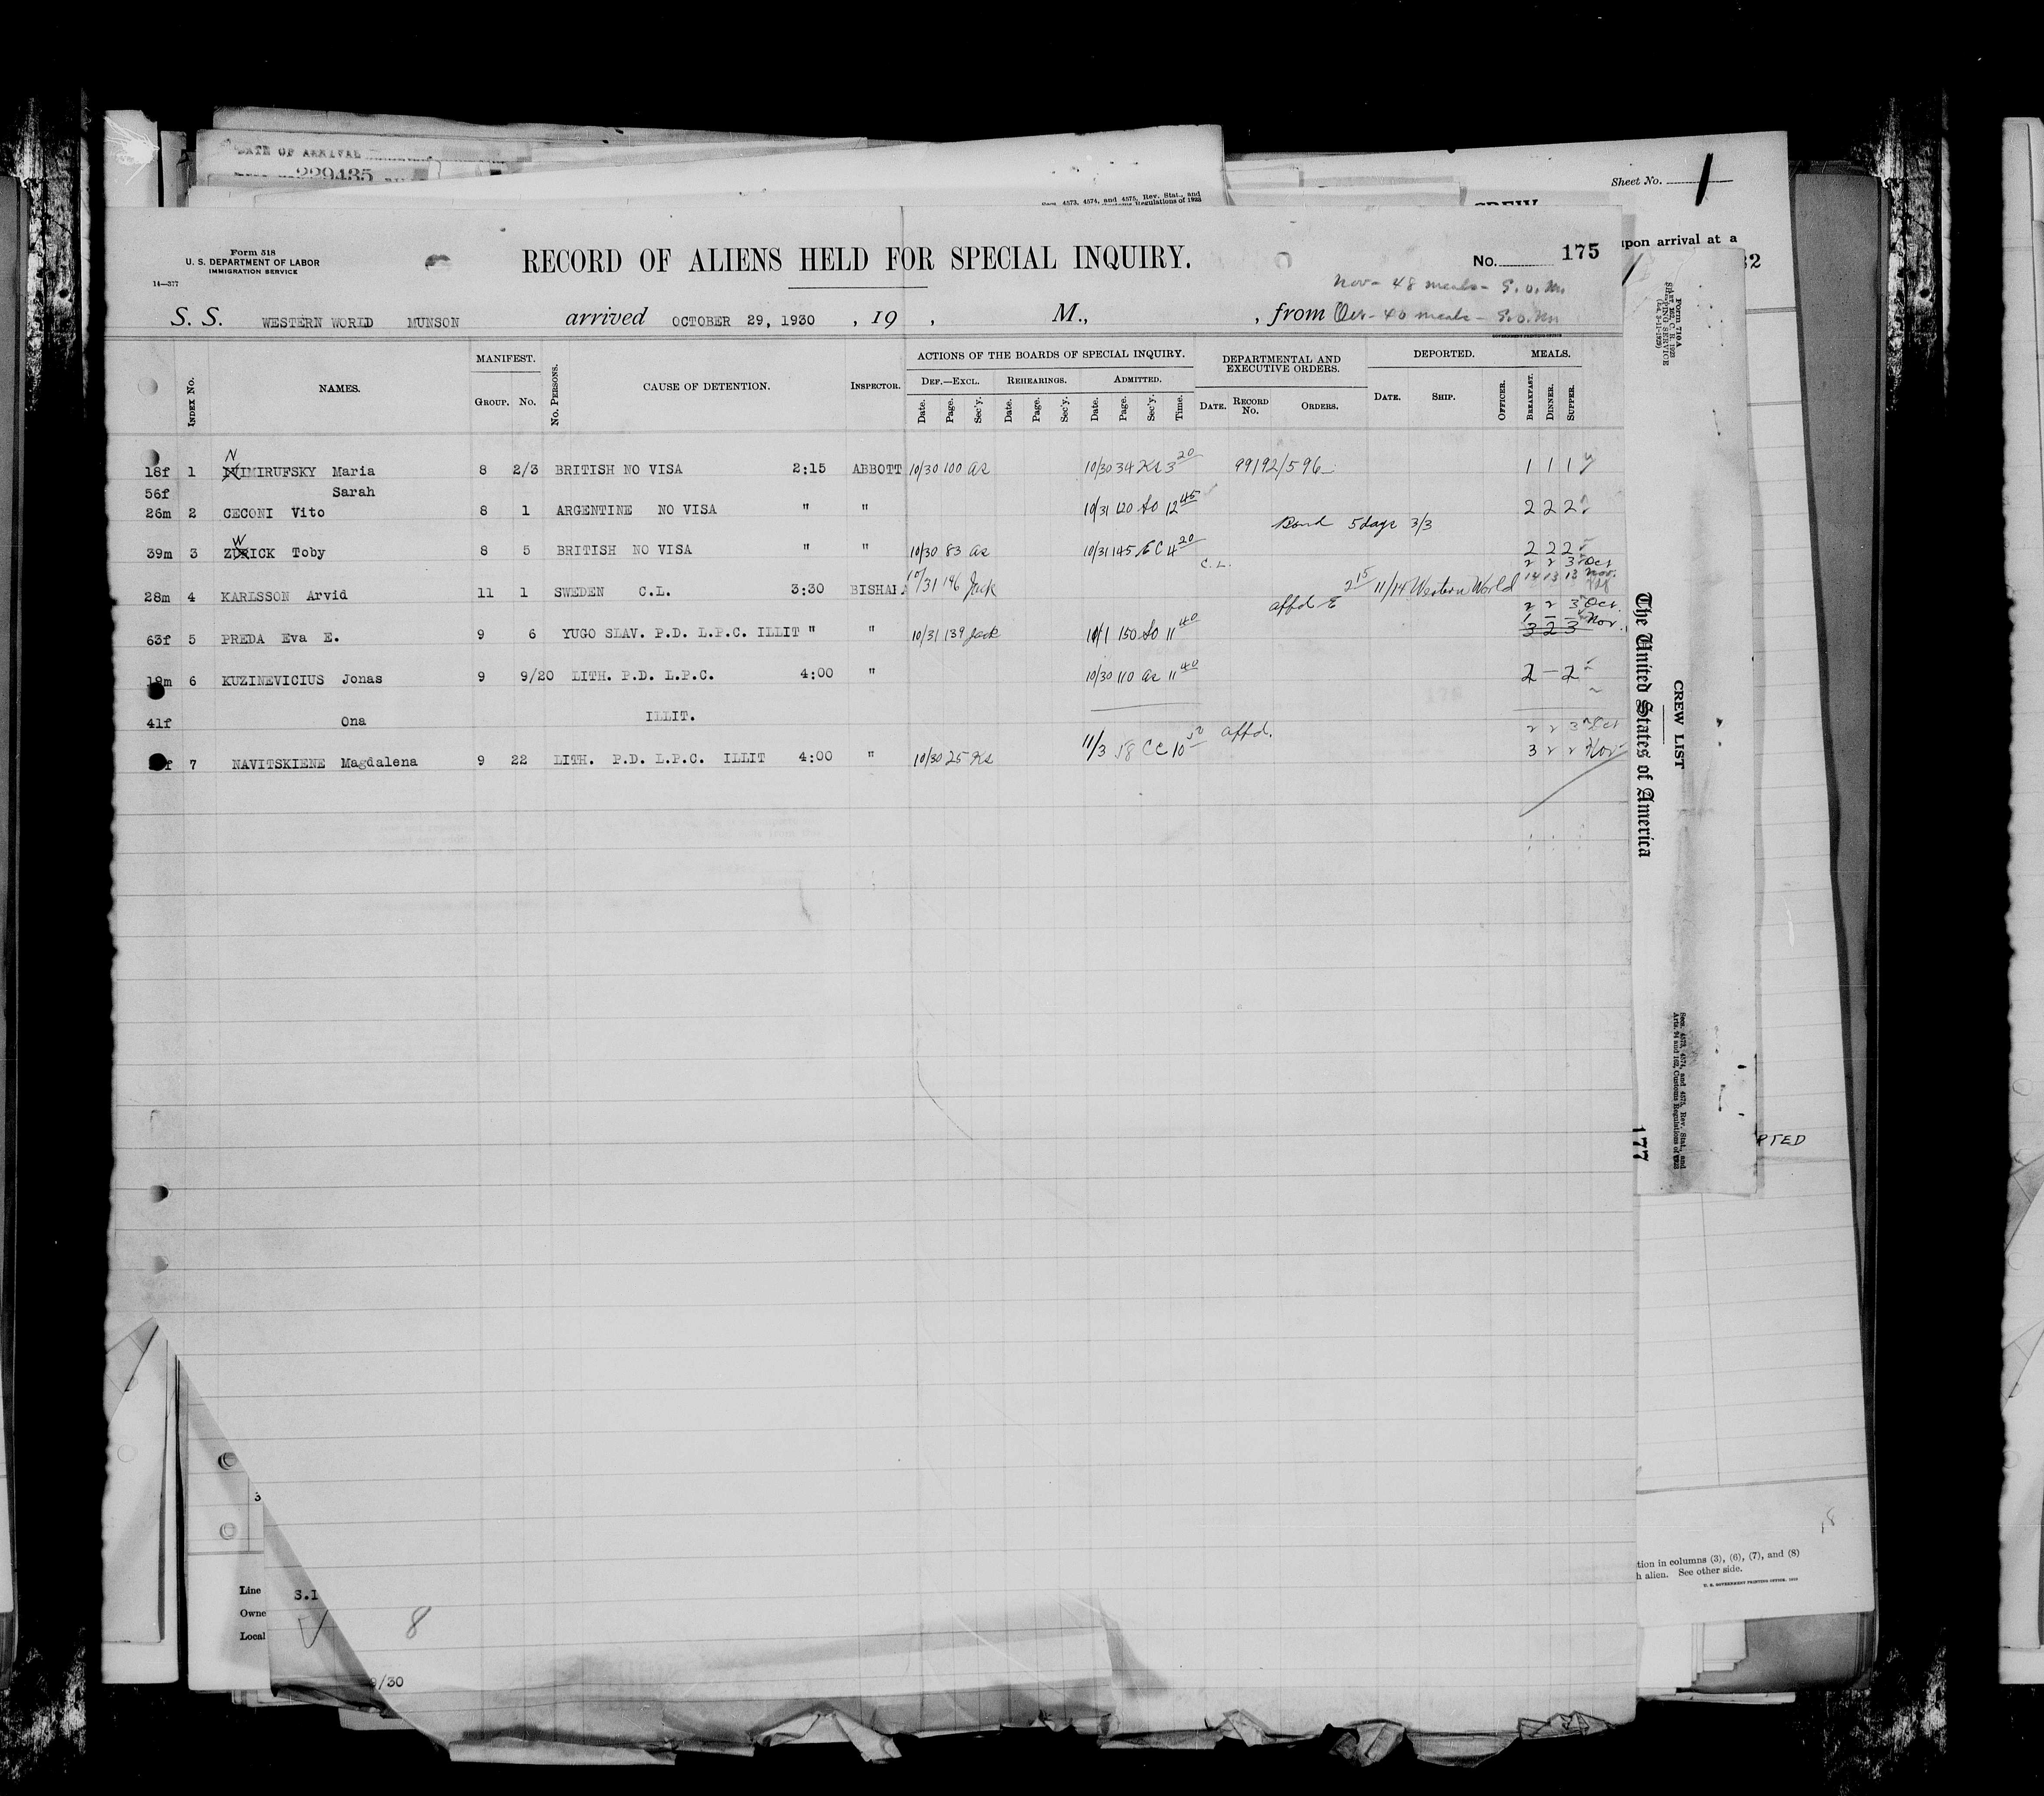 DATE OF ARRIVAL
229435
Secs. 4573, 4574, and 4575, Rev. Stat., and
Customs Regulations of 1923
Sheet No. 1
CREW
upon arrival at a
32
Form 518
U. S. DEPARTMENT OF LABOR
IMMIGRATION SERVICE
14—377
RECORD OF ALIENS HELD FOR SPECIAL INQUIRY.
No. 175
Nov - 48 meals - S.O.M.
S. S. WESTERN WORLD MUNSON arrived OCTOBER 29, 1930 , 19 , M., , from Oct - 40 meals - S.O.M.
GOVERNMENT PRINTING OFFICE
INDEX No. NAMES. MANIFEST. GROUP. No. No. PERSONS. CAUSE OF DETENTION. INSPECTOR. ACTIONS OF THE BOARDS OF SPECIAL INQUIRY. DEF.—EXCL. Date. Page. Sec'y. REHEARINGS. Date. Page. Sec'y. ADMITTED. Date. Page. Sec'y. Time. DEPARTMENTAL AND EXECUTIVE ORDERS. DATE. RECORD No. ORDERS. DEPORTED. DATE. SHIP. OFFICER. MEALS. BREAKFAST. DINNER. SUPPER.
N
18f 1 IMIRUFSKY Maria 8 2/3 BRITISH NO VISA 2:15 ABBOTT 10/30 100 as 10/30 34 Ks 3 20 99192/596 1 1 1
56f Sarah
26m 2 CECONI Vito 8 1 ARGENTINE NO VISA " " 10/31 120 So 12 45 2 2 2
Bond 5 days 3/3
W
39m 3 ZURICK Toby 8 5 BRITISH NO VISA " " 10/30 83 as 10/31 145 EC 4 20 2 2 2
C.L. 2 2 3 Oct
28m 4 KARLSSON Arvid 11 1 SWEDEN C.L. 3:30 BISHAI 10/31 196 Jack 2 15 11/14 Western World 14 13 13 Nov.
affd E 2 2 3 Oct.
1 – – Nov.
63f 5 PREDA Eva E. 9 6 YUGO SLAV. P.D. L.P.C. ILLIT " " 10/31 139 Jack 11/1 150 So 11 40 3 2 3
18m 6 KUZINEVICIUS Jonas 9 9/20 LITH. P.D. L.P.C. 4:00 " 10/30 110 as 11 40 2 – 2
41f Ona ILLIT.
affd. 2 2 3 Oct
f 7 NAVITSKIENE Magdalena 9 22 LITH. P.D. L.P.C. ILLIT 4:00 " 10/30 25 Ks 11/3 58 CC 10 50 3 2 2 Nov
Form 710A
SHIPPING SERVICE
The United States of America
CREW LIST
Secs. 4573, 4574, and 4575, Rev. Stat., and
Arts. 94 and 162, Customs Regulations of 1923
177
PTED
18
tion in columns (3), (6), (7), and (8)
h alien. See other side.
U. S. GOVERNMENT PRINTING OFFICE
3
Line
Owne
Local
S.I
8
9/30